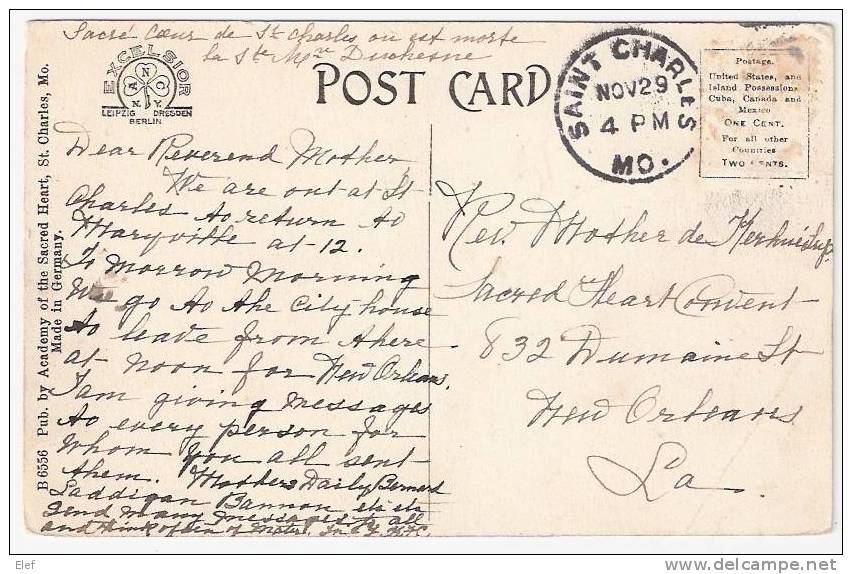 Sacré Cœur de St Charles où est morte
la Ste Mère Duchesne
EXCELSIOR
A N C
N.Y.
LEIPZIG DRESDEN
BERLIN
POST CARD
SAINT CHARLES
NOV 29
4 PM
MO.
Postage.
United States, and
Island Possessions
Cuba, Canada and
Mexico
ONE CENT.
For all other
Countries
TWO CENTS.
B 6556 Pub. by Academy of the Sacred Heart, St. Charles, Mo.
Made in Germany.
Dear Reverend Mother
We are out at St
Charles to return to
Maryville at 12.
To morrow morning
we go to the City house
to leave from there
at noon for New Orleans.
I am giving messages
to every person for
whom you all sent
them. Mothers Daily Bernard
Laddigan Bannon etc etc
Send many messages to all
and think of
Rev. Mother de
Sacred Heart Convent
832 Dumaine St
New Orleans
La
Elef
delcampe.net